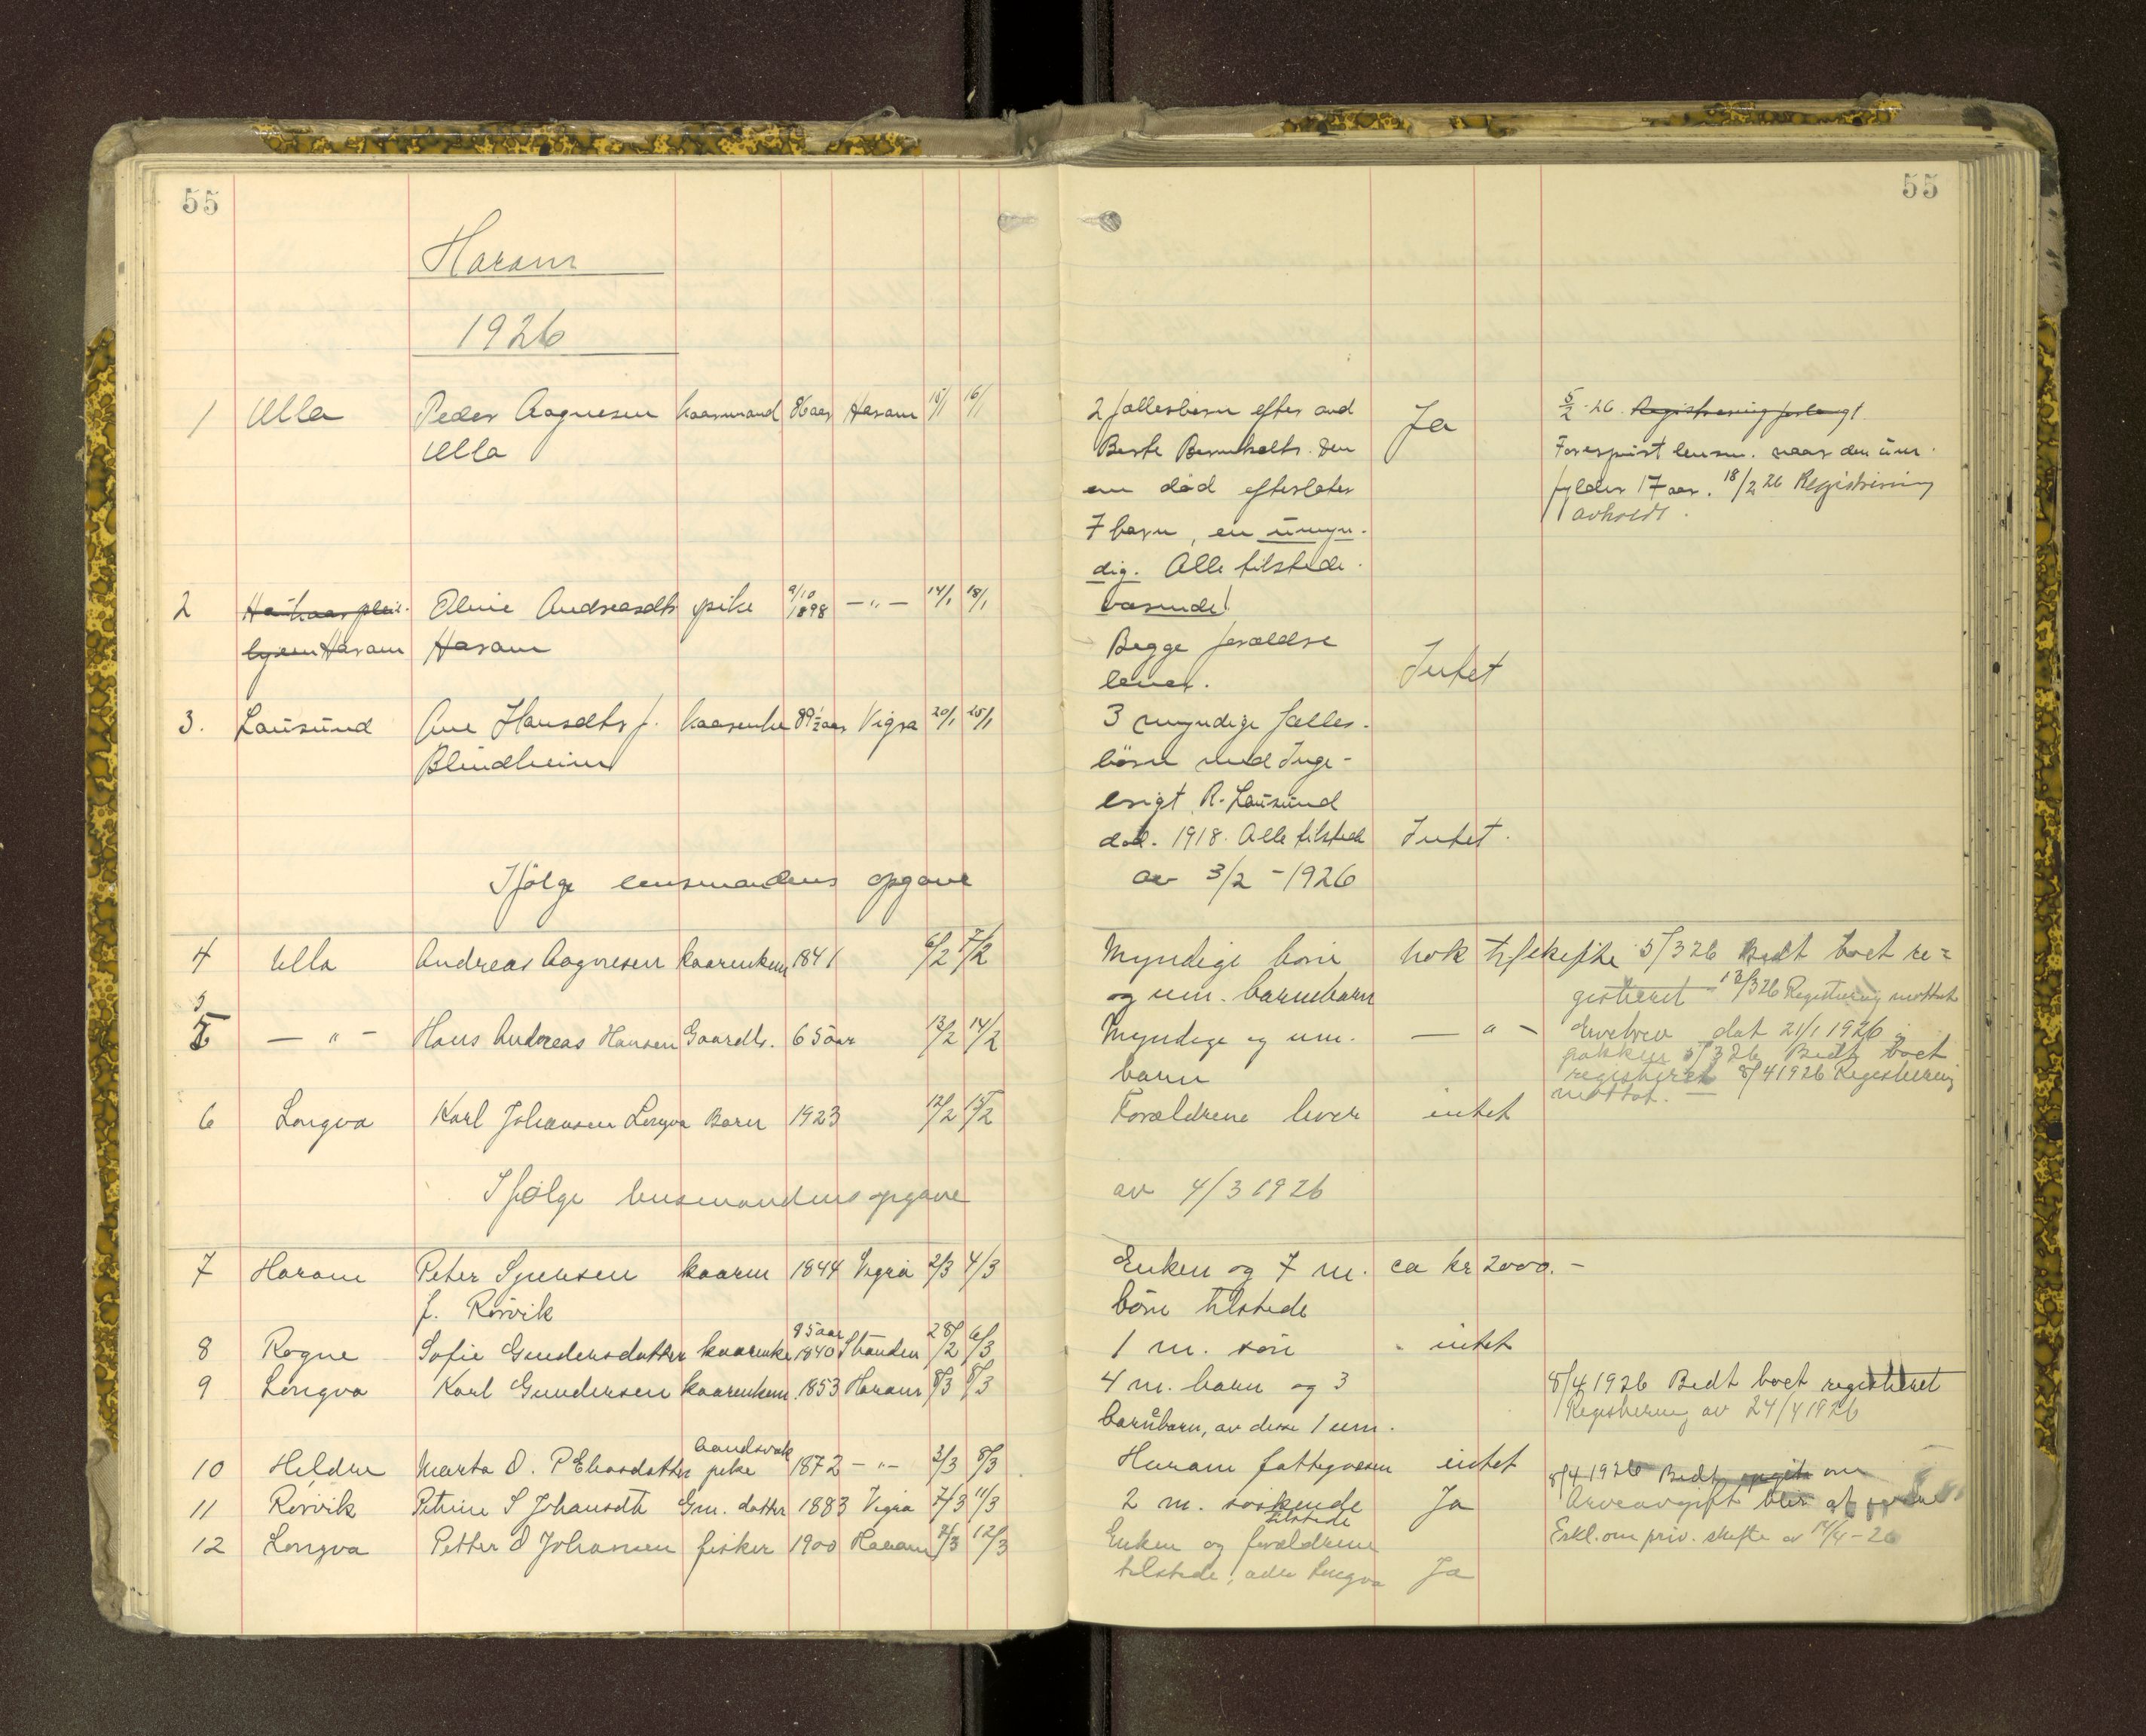 55
55
Haram
1926
1 Ulla Peder Aagnesen kaarmand 86 aar Haram 15/1 16/1
Ulla
2 fællesbörn efter avd
Berte Berntsdtr. Den
ene död efterlater
7 barn, en umyn-
dig. Alle tilstede-
værende!
Ja
5/2-26. Registrering forlangt
Forespurt lensm. naar den um.
fylder 17 aar. 18/2 26 Registrering
avholdt.
2 pleie- Oline Andreasdtr pike 9/10 1898 -"- 14/1 18/1
hjem Haram Haram
Begge forældre
lever. Intet
3. Lausund Ane Hansdtr f. kaarenke 89 1/2 aar Vigra 20/1 25/1
Blindheim
3 myndige fælles-
börn med Inge-
brigt R. Lausund
död. 1918. Alle tilstede Intet.
Ifölge lensmandens opgave av 3/2 - 1926
4 Ulla Andreas Aagnesen kaarenkem 1841 6/2 7/2
Myndige börn nok til skifte 5/3 26 Bedt boet re=
og um. barnebarn gistreret 18/3 26 Registrering mottat
5 5 -"- Hans Andreas Hansen Gaardbr. 65 aar 13/2 14/2
Myndige og um. -"- dat 21/1 1926 i
barn pakken 5/3 26 Bedt boet
registreret 8/4 1926 Registrering
mottat. —
6 Longva Karl Johansen Longva Barn 1923 12/2 15/2
Forældrene lever intet
Ifölge lensmandens opgave av 4/3 1926
7 Haram Peter Synesen kaarm 1844 Vigra 2/3 4/3
f. Rörvik
Enken og 7 m. ca kr 2000.-
börn tilstede
8 Rogne Sofie Gundersdatter kaarenke 85 aar 1840 Stranden 28/2 6/3
1 m. sön intet
9 Longva Karl Gundersen kaarenkem. 1853 Haram 8/3 8/3
4 m. barn og 3
barnebarn, av disse 1 um.
8/4 1926 Bedt boet registreret
Registrering av 24/4 1926
10 Hildre Marta O. P Eliasdatter aandsvak pike 1872 -"- 3/3 8/3
Haram fattigvæsen intet
11 Rörvik Petrine S Johansdtr Gm. datter 1883 Vigra 7/3 11/3
2 m. söskende tilstede Ja
8/4 1926 Bedt opgit om
Arveavgift blir at
12 Longva Petter O Johansen fisker 1900 Haram 12/3
Enken og forældrene
tilstede, alle Longva Ja
Erkl. om priv. skifte av 14/4-26